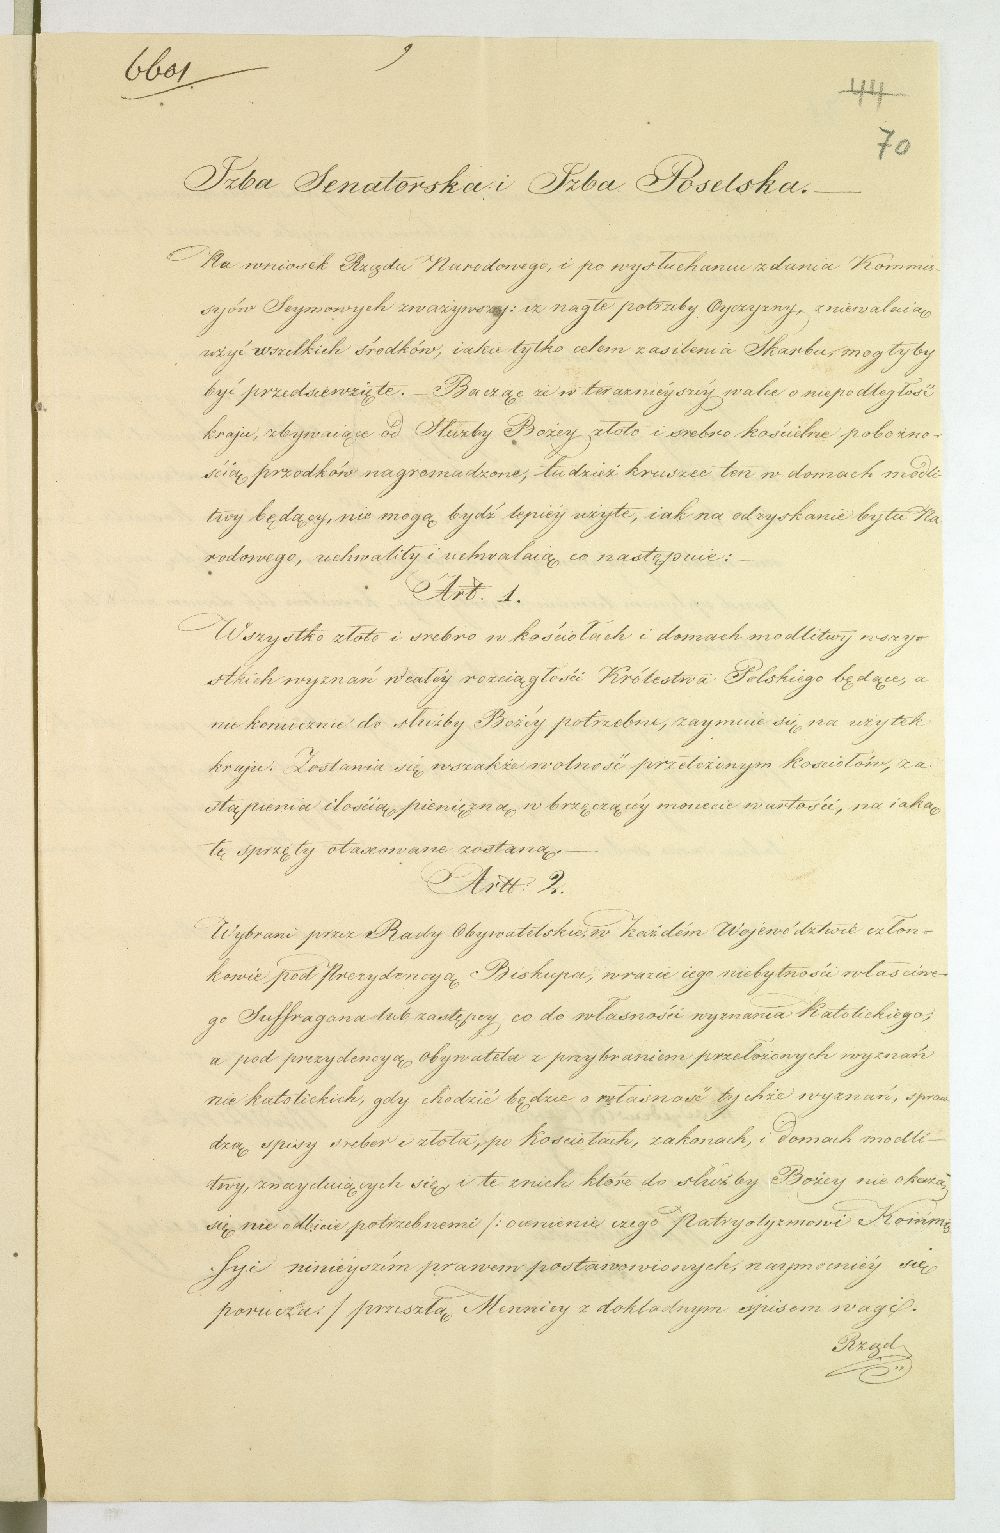 6601
44
70
Izba Senatorska i Izba Poselska. —
Na wniosek Rządu Narodowego, i po wysłuchaniu zdania Kommis-
syów Seymowych zważywszy: iż nagłe potrzeby Oyczyzny, zniewalaią
użyć wszelkich środków, iakie tylko celem zasilenia Skarbu, mogłyby
być przedsięwzięte. — Bacząc że w teraznieyszéy walce o niepodległość
kraju, zbywaiące od Służby Bożey złoto i srebro kościelne pobożno-
ścią przodków nagromadzone, tudzież kruszec ten w domach modli-
twy będący, nie mogą bydź lepiéy użyte, iak na odzyskanie bytu Na
rodowego, uchwaliły i uchwalaią co następuie: —
Art. 1.
Wszystko złoto i srebro w kościołach i domach modlitwy wszy-
stkich wyznań w całéy rozciągłości Królestwa Polskiego będące, a
nie koniecznie do służby Bożéy potrzebne, zaymuie się na użytek
kraju. Zostawia się wszakże wolność przełożonym kościołów, za
stąpienia ilością pieniężną w brzęczącéy monecie wartości, na iaką
te sprzęty otaxowane zostaną. —
Artt. 2.
Wybrani przez Rady Obywatelskie w każdém Województwie człon-
kowie pod Prezydencyą Biskupa, w razie iego niebytności właściwe-
go Suffragana lub zastępcy co do własności wyznania Katolickiego;
a pod prezydencyą Obywatela z przybraniem przełożonych wyznań
nie katolickich, gdy chodzić będzie o własność tychże wyznań, spraw
dzą spisy sreber i złota, po Kościołach, zakonach, i domach modli-
twy, znayduiących się i te z nich które do służby Bożey nie okażą
się nieodbicie potrzebnemi /: ocenienie czego Patryotyzmowi Kommis
syi ninieyszém prawem postanowionych, naymocniéy się
porucza: / przeszłą Mennicy z dokładnym spisem wagi.
Rząd